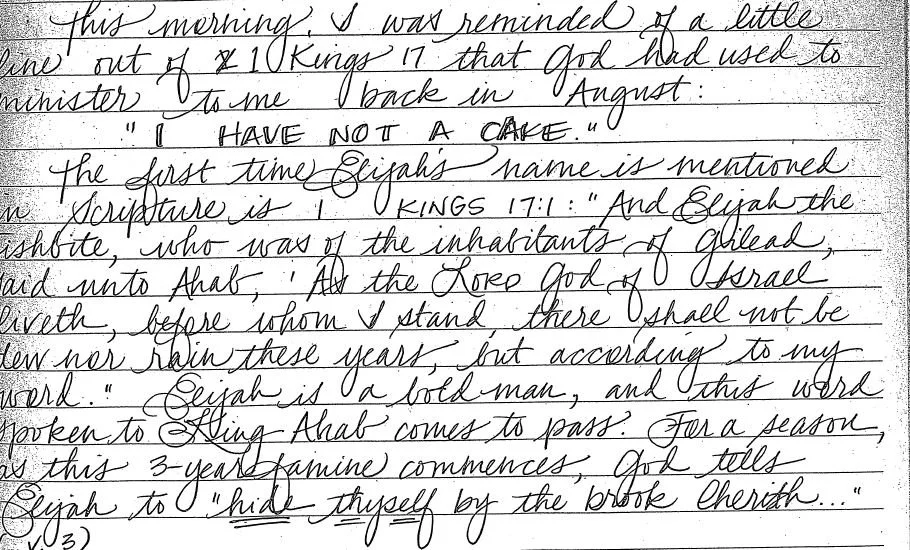 This morning, I was reminded of a little
line out of 1 Kings 17 that God had used to
minister to me back in August:
"I HAVE NOT A CAKE."
The first time Elijah's name is mentioned
in Scripture is 1 KINGS 17:1: "And Elijah the
ishbite, who was of the inhabitants of Gilead,
said unto Ahab, 'As the LORD God of Israel
liveth, before whom I stand, there shall not be
dew nor rain these years, but according to my
word." Elijah is a bold man, and this word
spoken to King Ahab comes to pass. For a season,
as this 3-year famine commences, God tells
Elijah to "hide thyself by the brook Cherith..."
v. 3)